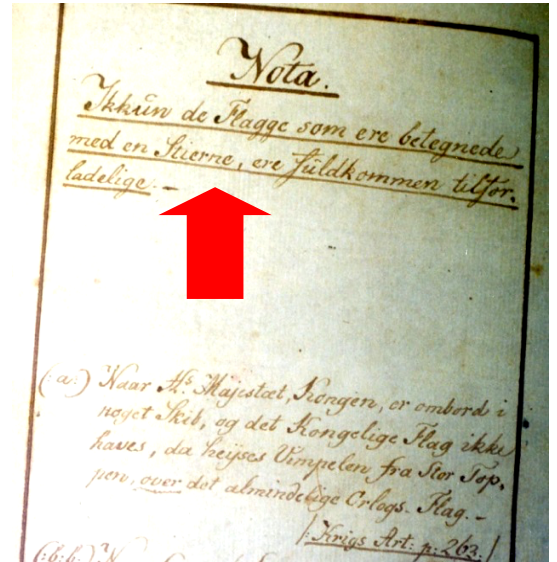 Nota.
Ikkün de Flagge som ere betegnede
med en Stierne, ere füldkommen tilfor-
ladelige: -
(:a:) Naar Hs. Majestæt, Kongen, er ombord i
noget Skib, og det Kongelige Flag ikke
haves, da heÿses Vimpelen fra Stor Top-
pen, over det almindelige Orlogs. Flag. -
/: Krigs Art: p. 262. /
(:b:b:)